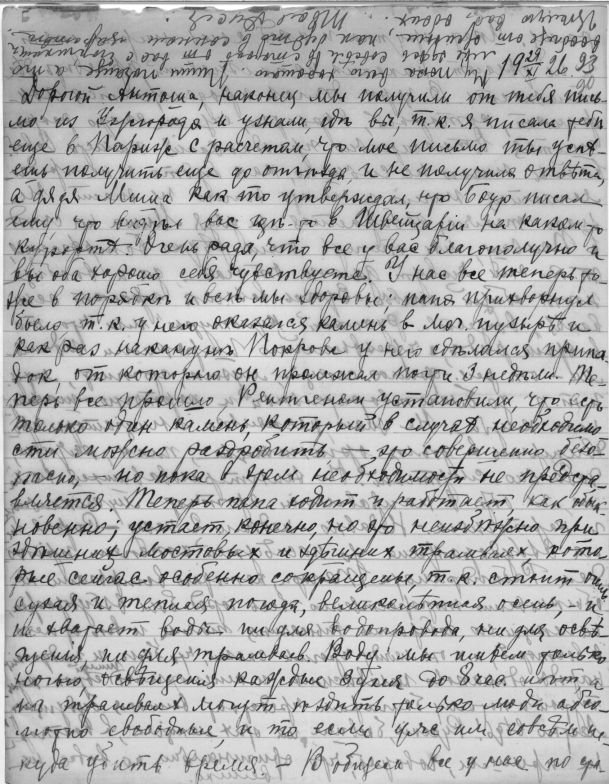 19 29/XI 26. 93
Дорогой Антоша, наконец мы получили от тебя пись-
мо из Ужгорода и узнали где вы, т.к. я писала тебе
еще в Париж с расчетом, что мое письмо ты успе-
ешь получить еще до отъезда, и не получила ответа,
а дядя Миша как то утверждал, что Боур писал
ему что видел вас где-то в Швейцаріи на каком-то
курорте. Очень рада, что все у вас благополучно и
вы оба хорошо себя чувствуете. У нас все теперь то-
же в порядке и все мы здоровы; папа прихворнул
было т.к. у него оказался камень в моч. пузыре и
как раз накануне Покрова у него сделался припа-
док, от которого он пролежал почти 3 недели. Те-
перь все прошло. Рентгеном установили что есть
только один камень, который в случае необходимо-
сти можно раздробить – это совершенно безо-
пасно, но пока в этом необходимости не предста-
вляется. Теперь папа ходит и работает, как обык-
новенно; устает, конечно, но это неизбежно при
здешних мостовых и здешних трамваях, кото-
рые сейчас особенно сокращены, т.к. стоит
сухая и теплая погода, великолепная осень, – и
не хватает воды ни для водопровода, ни для осве-
щения ни для трамвая. Воду мы имеем только
ночью, освещения каждые 3 дня до 8 час и т.п.
на трамваях могут ездить только люди абсо-
лютно свободные, и то если уже им совсем не-
куда убить время – В общем все у нас по